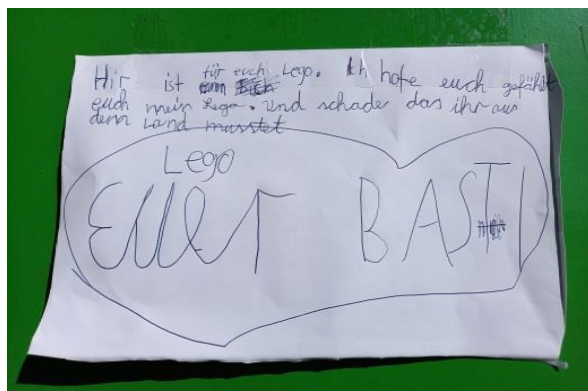 Hir ist für euch Lego. Ich hofe euch gefählt
euch mein Lego. Und schade das ihr aus
denn Land musstet
Lego
Euer BASTI